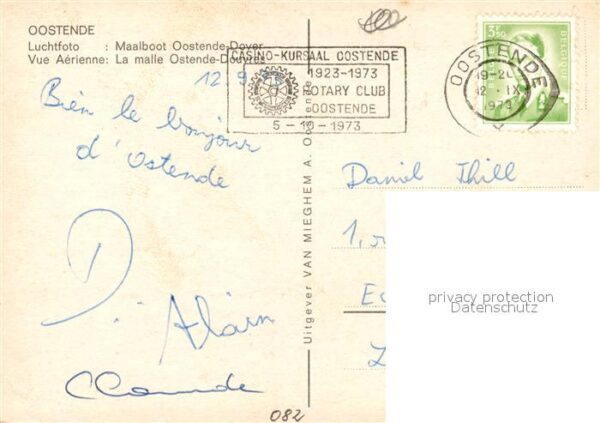 OOSTENDE
Luchtfoto : Maalboot Oostende-Dover
Vue Aérienne: La malle Ostende-Douvres
CASINO-KURSAAL OOSTENDE
1923-1973
ROTARY CLUB
OOSTENDE
5-10-1973
OOSTENDE
19-20
12 IX
1973
3F50
BELGIQUE
12 9
Bien le bonjour
d'Ostende
D.
Alain
Claude
Uitgever VAN MIEGHEM A. Oostende
Daniel Thill
1, r
privacy protection
Datenschutz
082